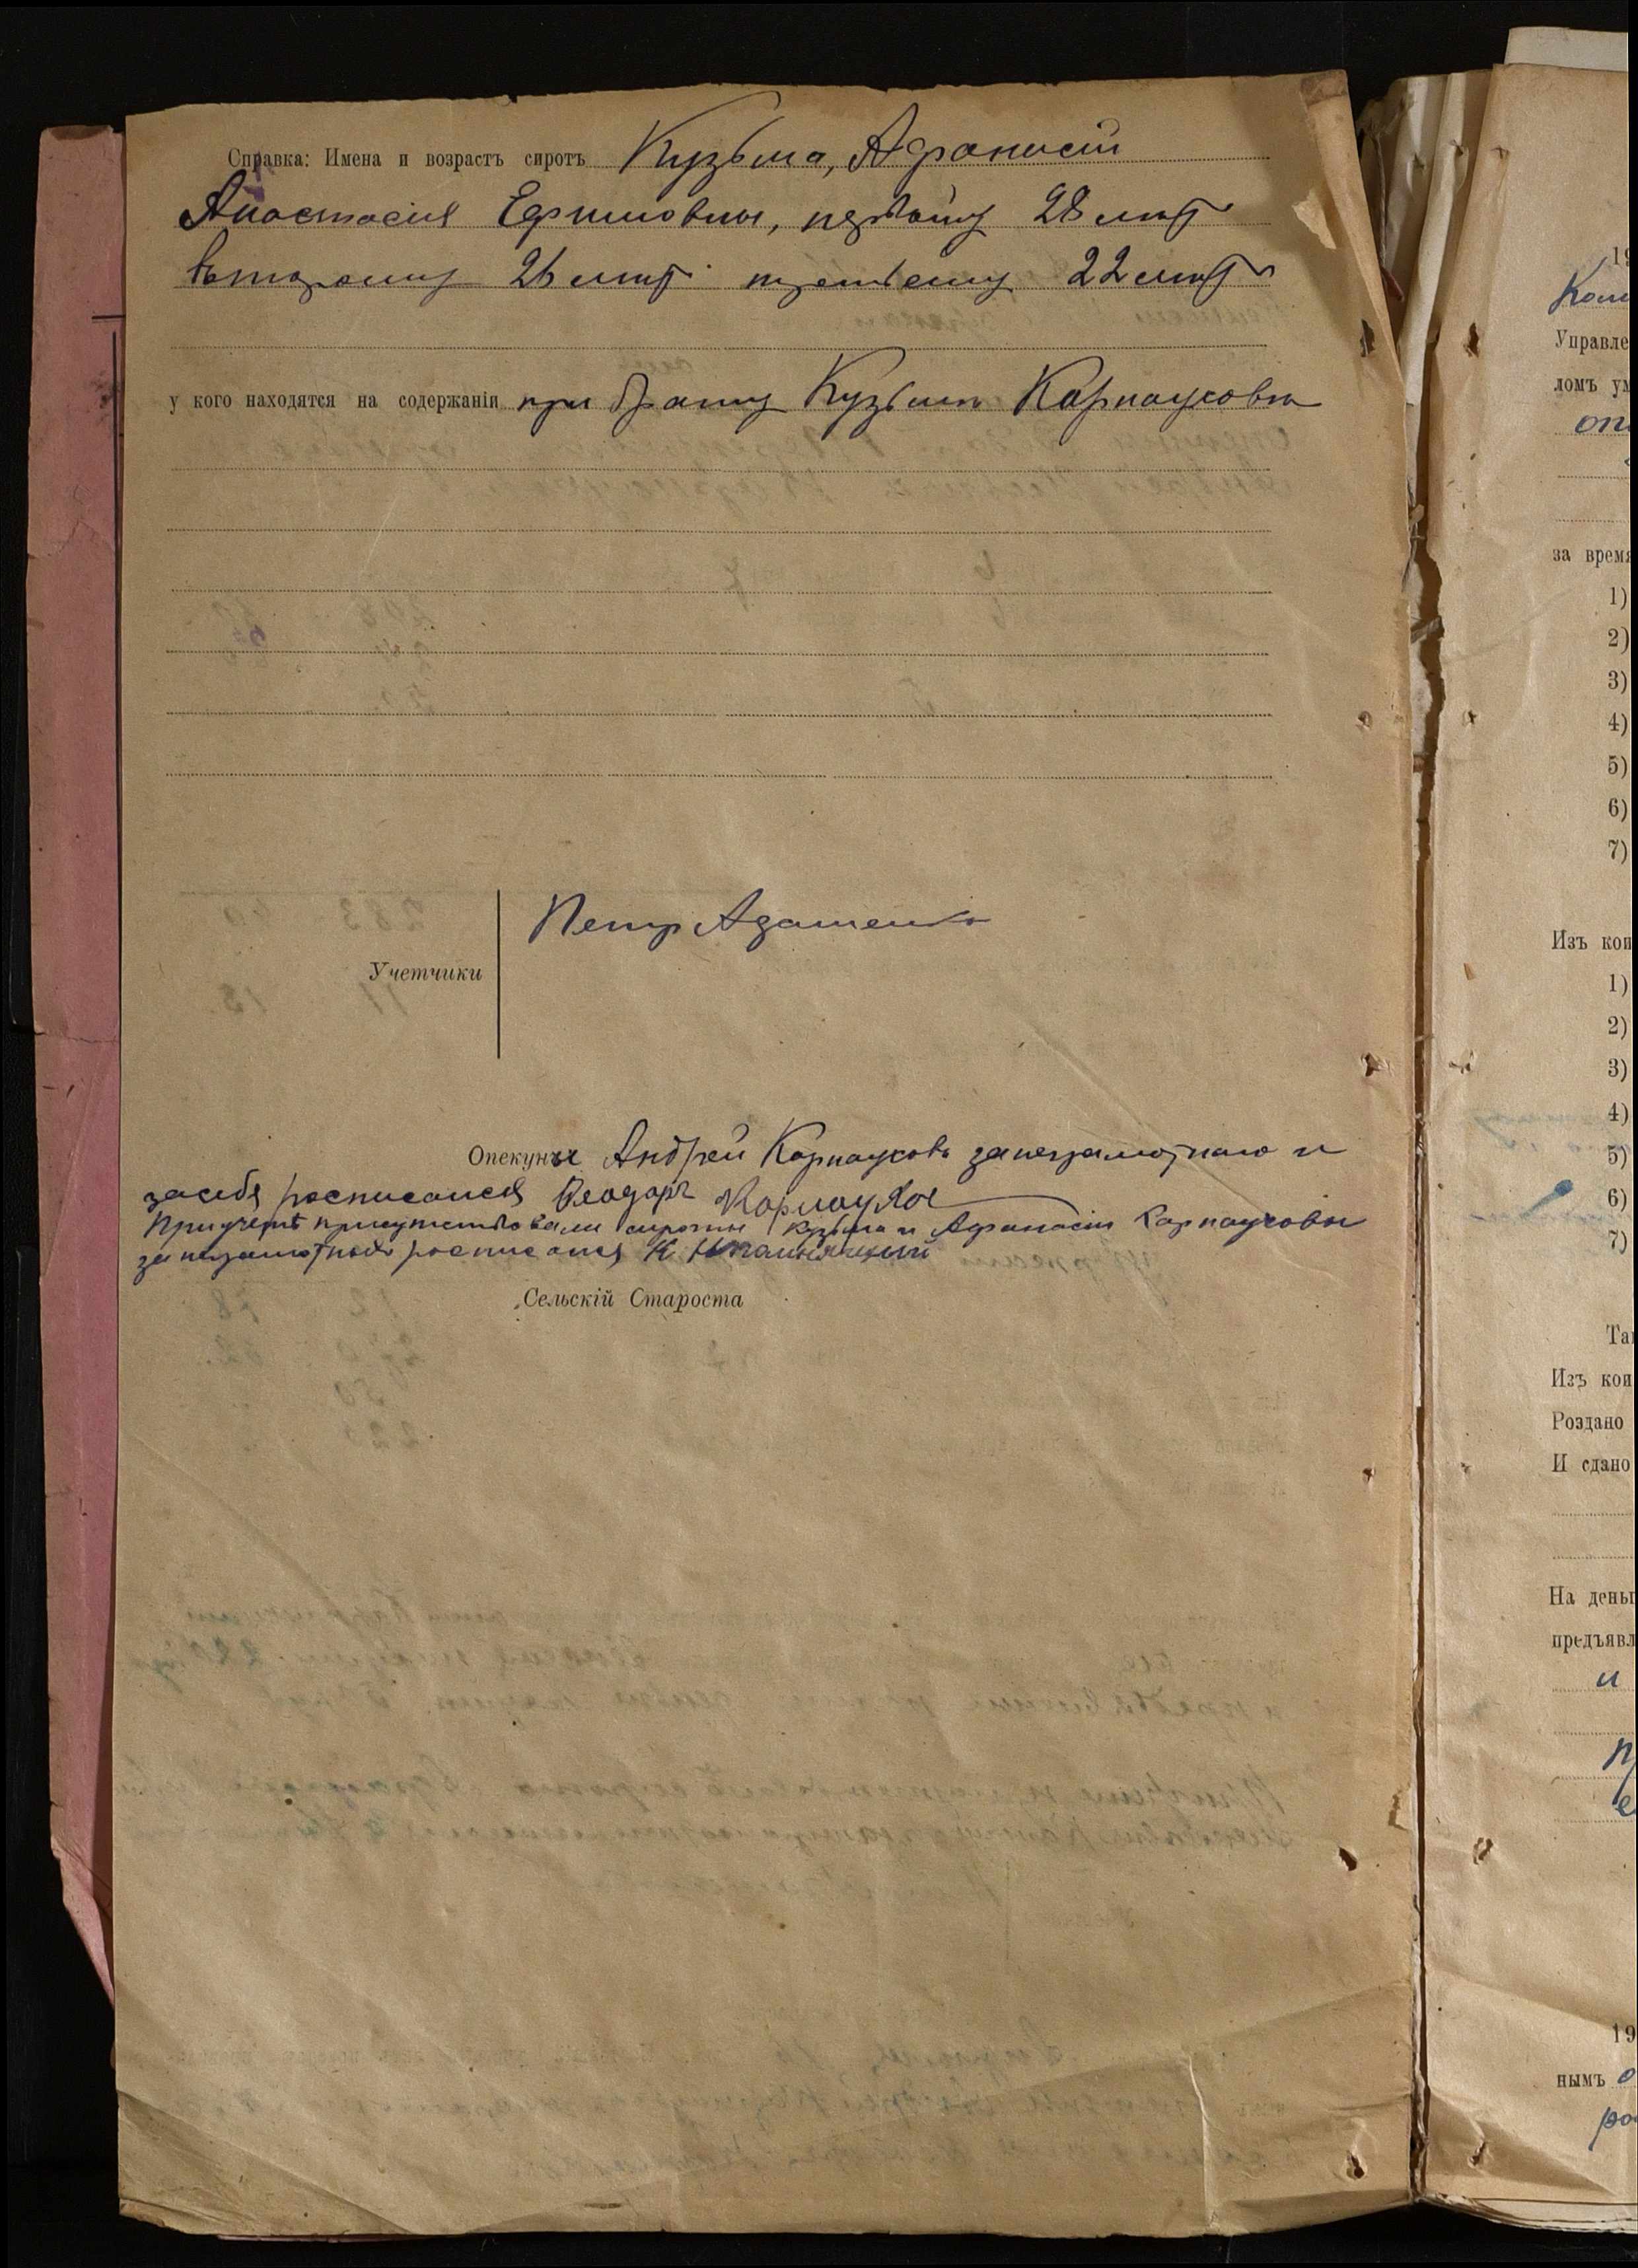 Справка: Имена и возрастъ сиротъ Кузьма, Афонасій
Анастасія Ефимовны, первому 28 лѣтъ
второму 26 лѣтъ третьему 22 лѣтъ
у кого находятся на содержаніи при брату Кузьмѣ Карпауховѣ
Петр Адаменко
Учетчики
Опекуны Андрей Карпауховъ за неграмотнаго и
за себя росписался Феодоръ Карпаухов
При учетѣ присутствовали сироты Кузьма и Афанасій Карпауховы
за неграмотных росписался К
Сельскій Староста
19
Ком
Управле
ломъ ум
опе
за время
1)
2)
3)
4)
5)
6)
7)
Изъ кои
1)
2)
3)
4)
5)
6)
7)
Та
Изъ кои
Роздано
И сдано
На деньг
предъявл
и
19
нымъ о
ро